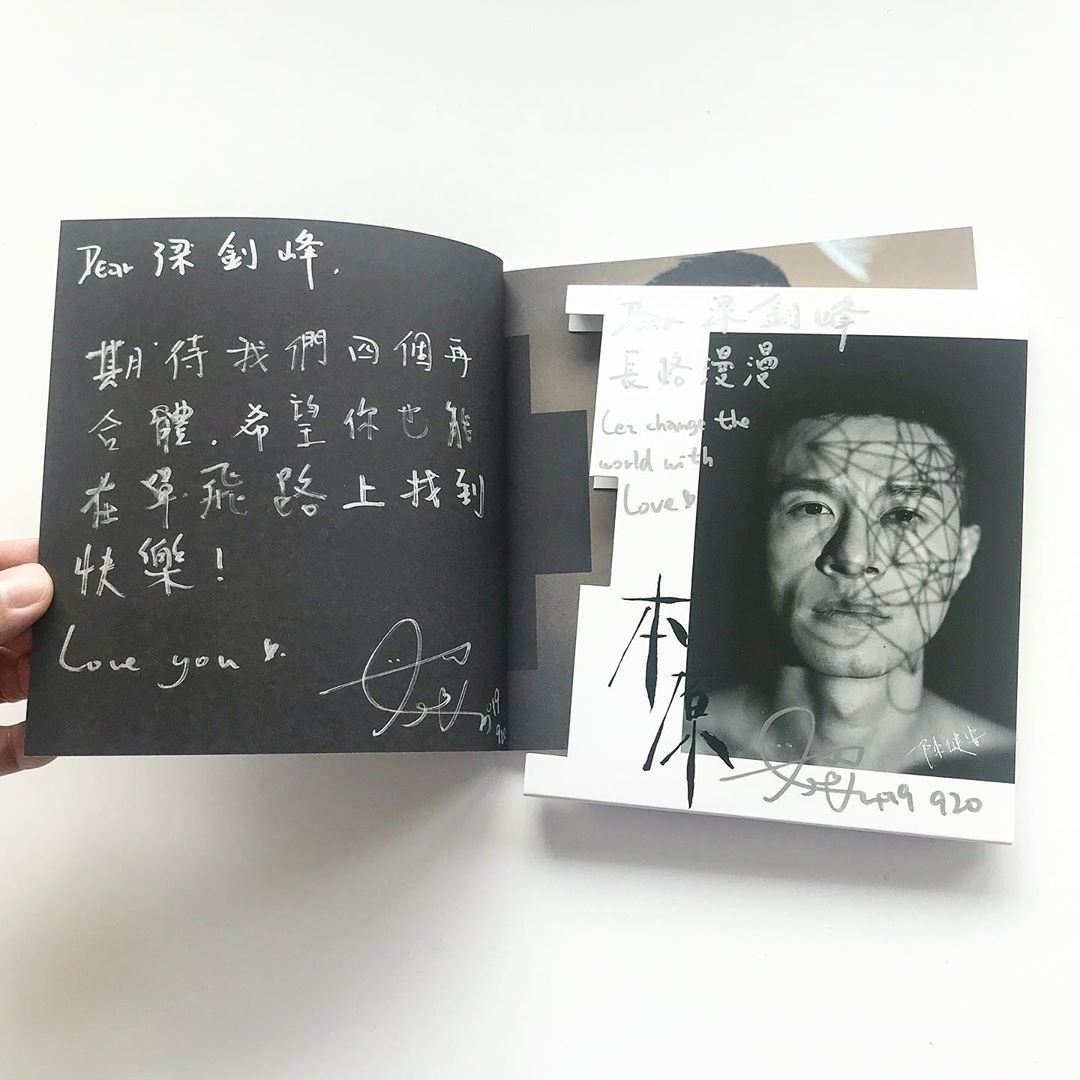 Dear 梁釗峰,
期待我們四個再
合體. 希望你也能
在單飛路上找到
快樂!
Love you
2019
920
Dear 梁釗峰
長路漫漫
Lez change the
world with
Love
本
原
陳健安
2019 920